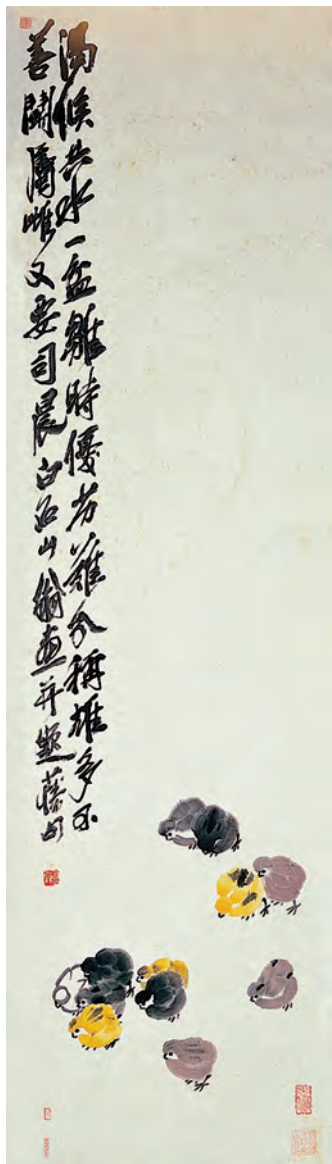 渴候共水一盆雛時優劣難分稱雄多不
善鬪屬雌又要司晨白石山翁畫并題舊句